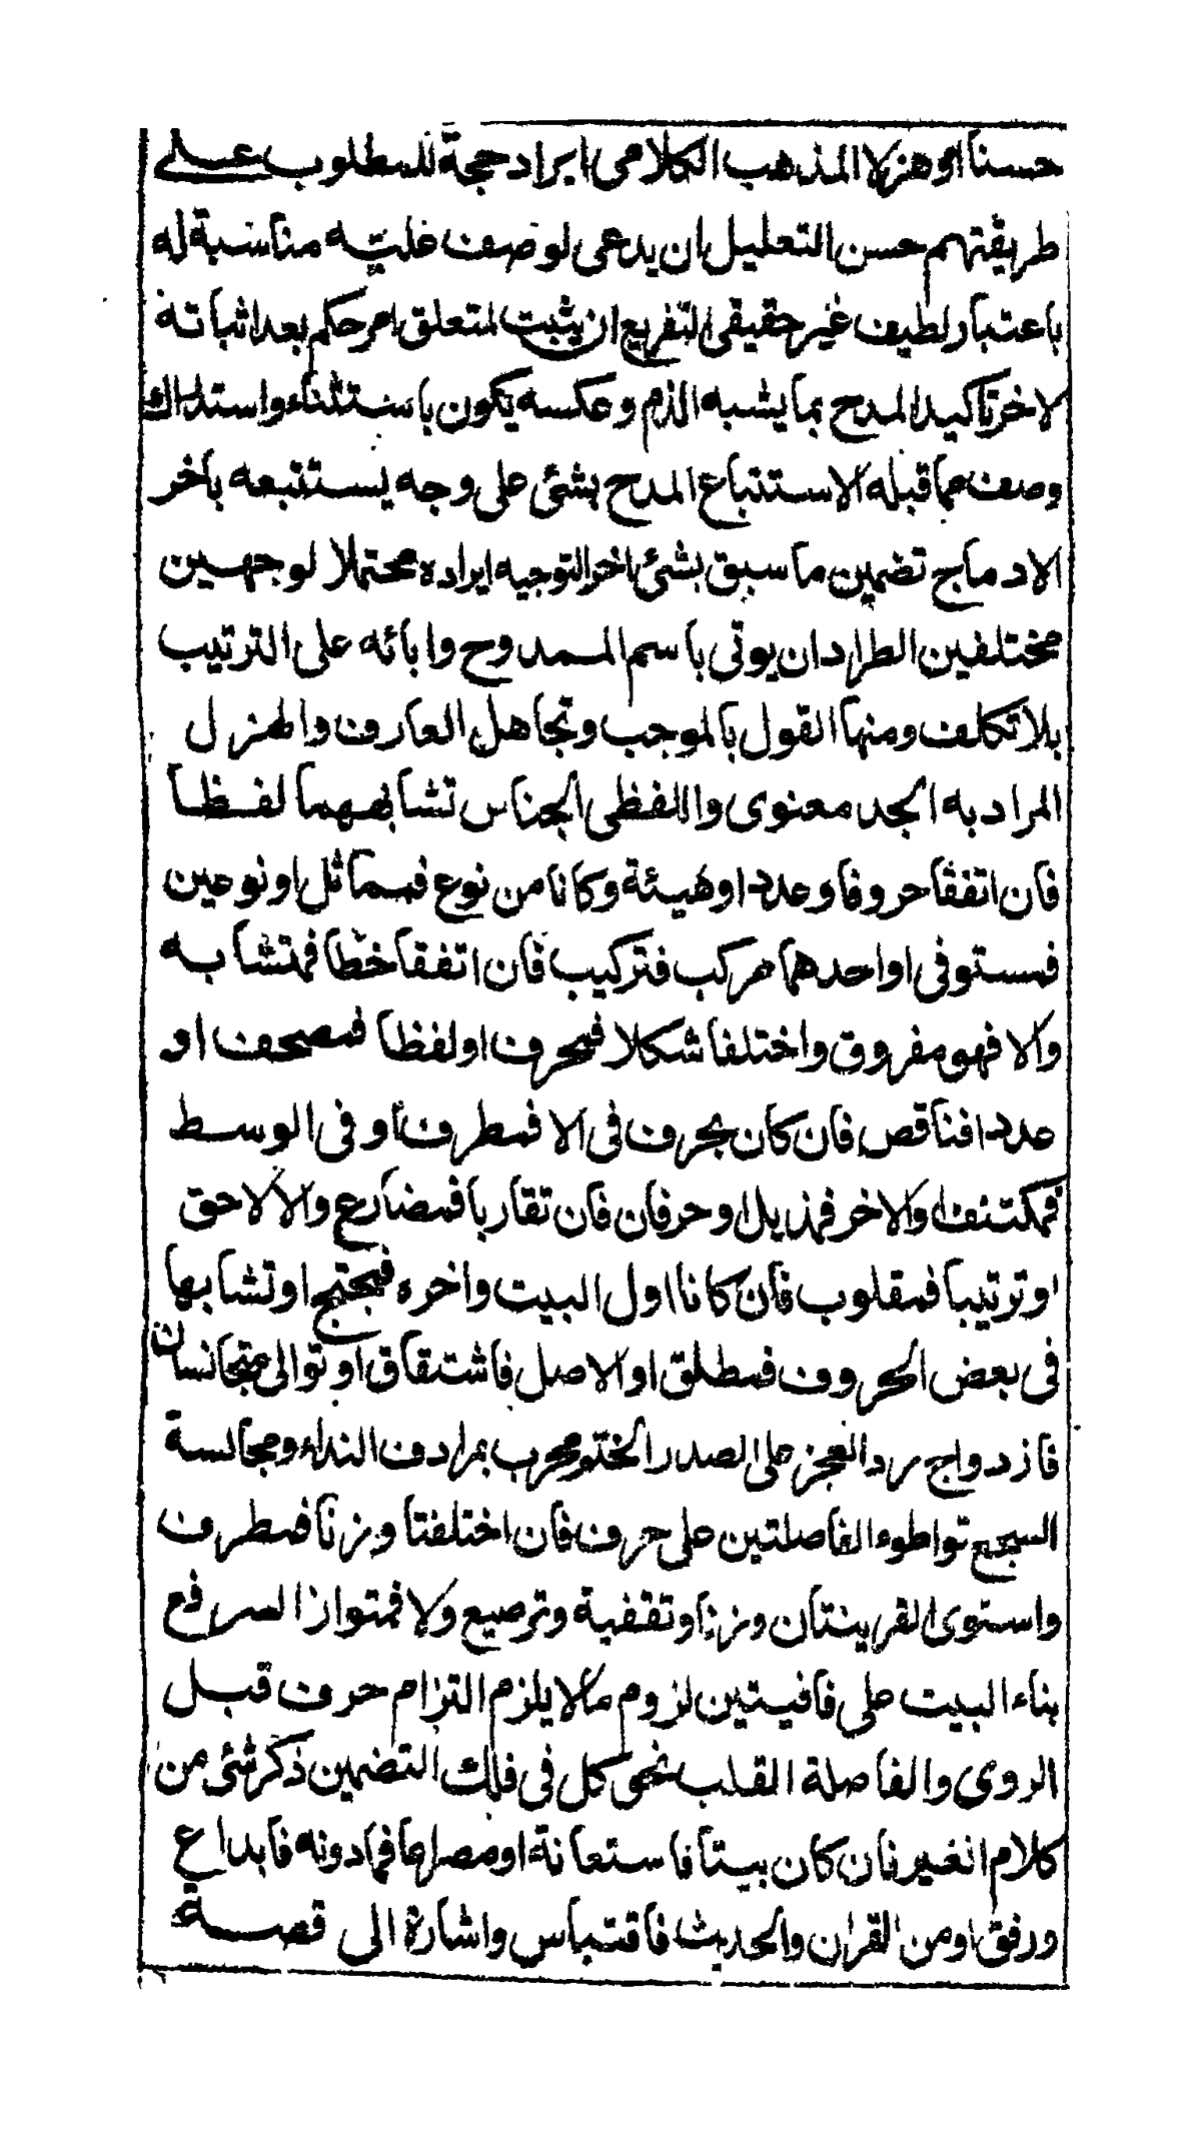 حسنا او هزلا المذهب الكلامى ايراد حجة للمطلوب على
طريقتهم حسن التعليل ان يدعى لوصف علية مناسبة له
باعتبار لطيف غير حقيقى التفريع ان يثبت لمتعلق امر حكم بعد اثباته
لاخر تاكيد المدح بما يشبه الذم وعكسه يكون باستثناء واستدراك
وصف مما قبله الاستتباع المدح بشئ على وجه يستتبعه باخر
الادماج تضمين ما سبق بشئ اخر التوجيه ايراده محتملا لوجهين
مختلفين الطراد ان يوتى باسم الممدوح وابائه على الترتيب
بلا تكلف ومنها القول بالموجب وتجاهل العارف والهزل
المراد به الجد معنوى واللفظى الجناس تشابههما لفظا
فان اتفقا حروفا وعددا وهيئة وكانا من نوع فمماثل او نوعين
فمستوفى او احدهما مركب فتركيب فان اتفقا خطا فمتشابه
والا فهو مفروق واختلفا شكلا فمحرف او لفظا فمصحف او
عددا فناقص فان كان بحرف فى الا فمطرف او فى الوسط
فمكتنف او الاخر فمذيل او حرفان فان تقاربا فمضارع والا لاحق
او ترتيبا فمقلوب فان كانا اول البيت واخره فمجنح او تشابها
فى بعض الحروف فمطلق او الاصل فاشتقاق او توالى متجانسان
فازدواج رد العجز على الصدر الختم بمرادف النداء ومجالسة
السجع تواطوء الفاصلتين على حرف فان اختلفتا وزنا فمطرف
واستوى القرينتان وزنا وتقفية وترصيع ولا فمتواز السر فع
بناء البيت على قافيتين لزوم ما لا يلزم التزام حرف قبل
الروى والفاصلة القلب نحو كل فى فلك التضمين ذكر شئ من
كلام الغير فان كان بيتا فاستعانة او مصراعا فما دونه فابداع
ورفو او من القران والحديث فاقتباس واشارة الى قصة